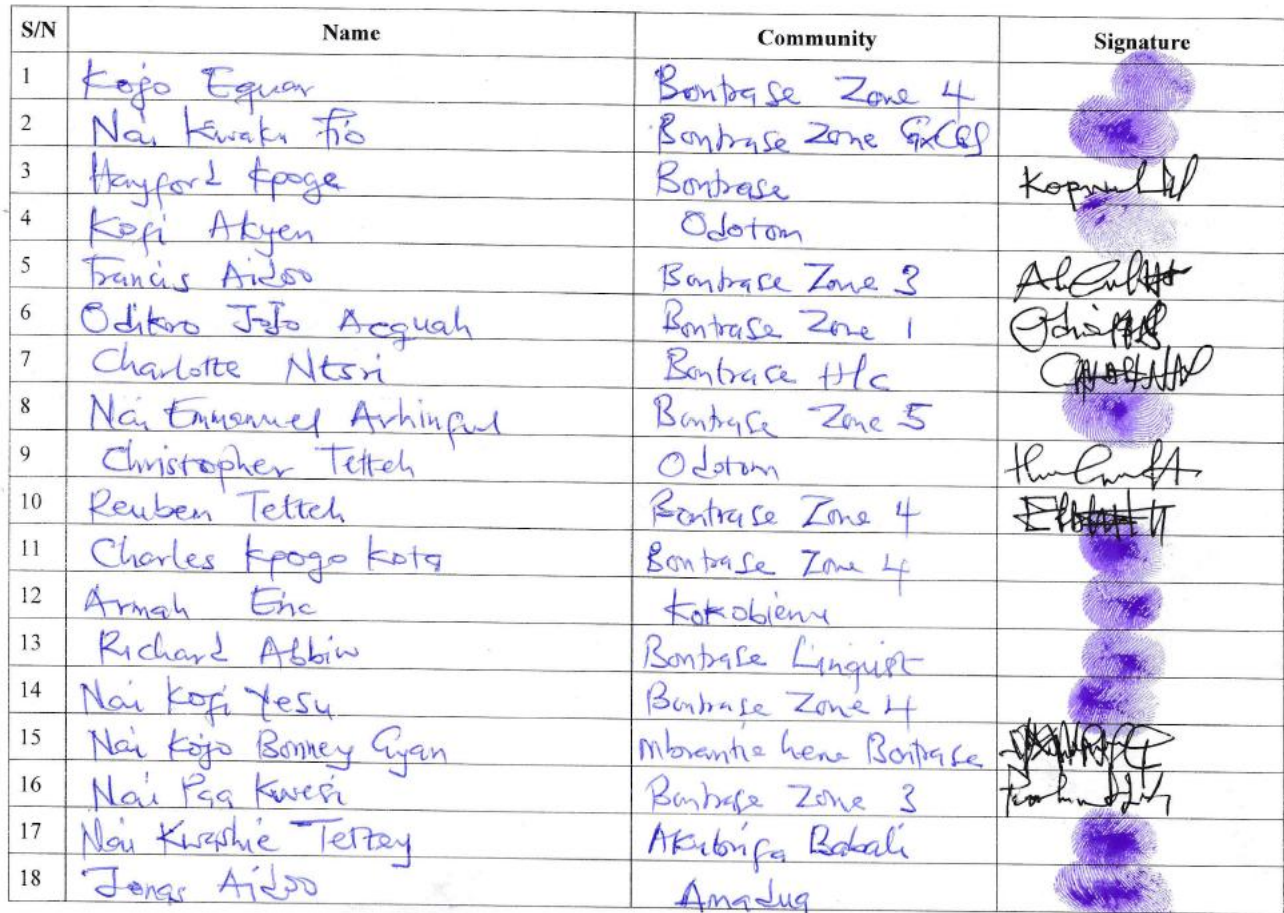 S/N Name Community Signature
1 Kojo Equar Bontrase Zone 4
2 Nai Kwaku Fio Bontrase Zone
3 Hayford Kpoge Bontrase
4 Kofi Akyen Odotom
5 Francis Aidoo Bontrase Zone 3
6 Odikro JoJo Acquah Bontrase Zone 1
7 Charlotte Ntsri Bontrase H/c
8 Nai Emmanuel Arhinful Bontrase Zone 5
9 Christopher Tetteh Odotom
10 Reuben Tetteh Bontrase Zone 4
11 Charles Kpogo Kota Bontrase Zone 4
12 Armah Eric Kokobienu
13 Richard Abbiw Bontrase Linguist
14 Nai Kofi Yesu Bontrase Zone 4
15 Nai Kojo Bonney Gyan Mbrantie hene Bontrase
16 Nai Paa Kwesi Bontrase Zone 3
17 Nai Kwashie Tettey Babali
18 Jonas Aidoo Amadua